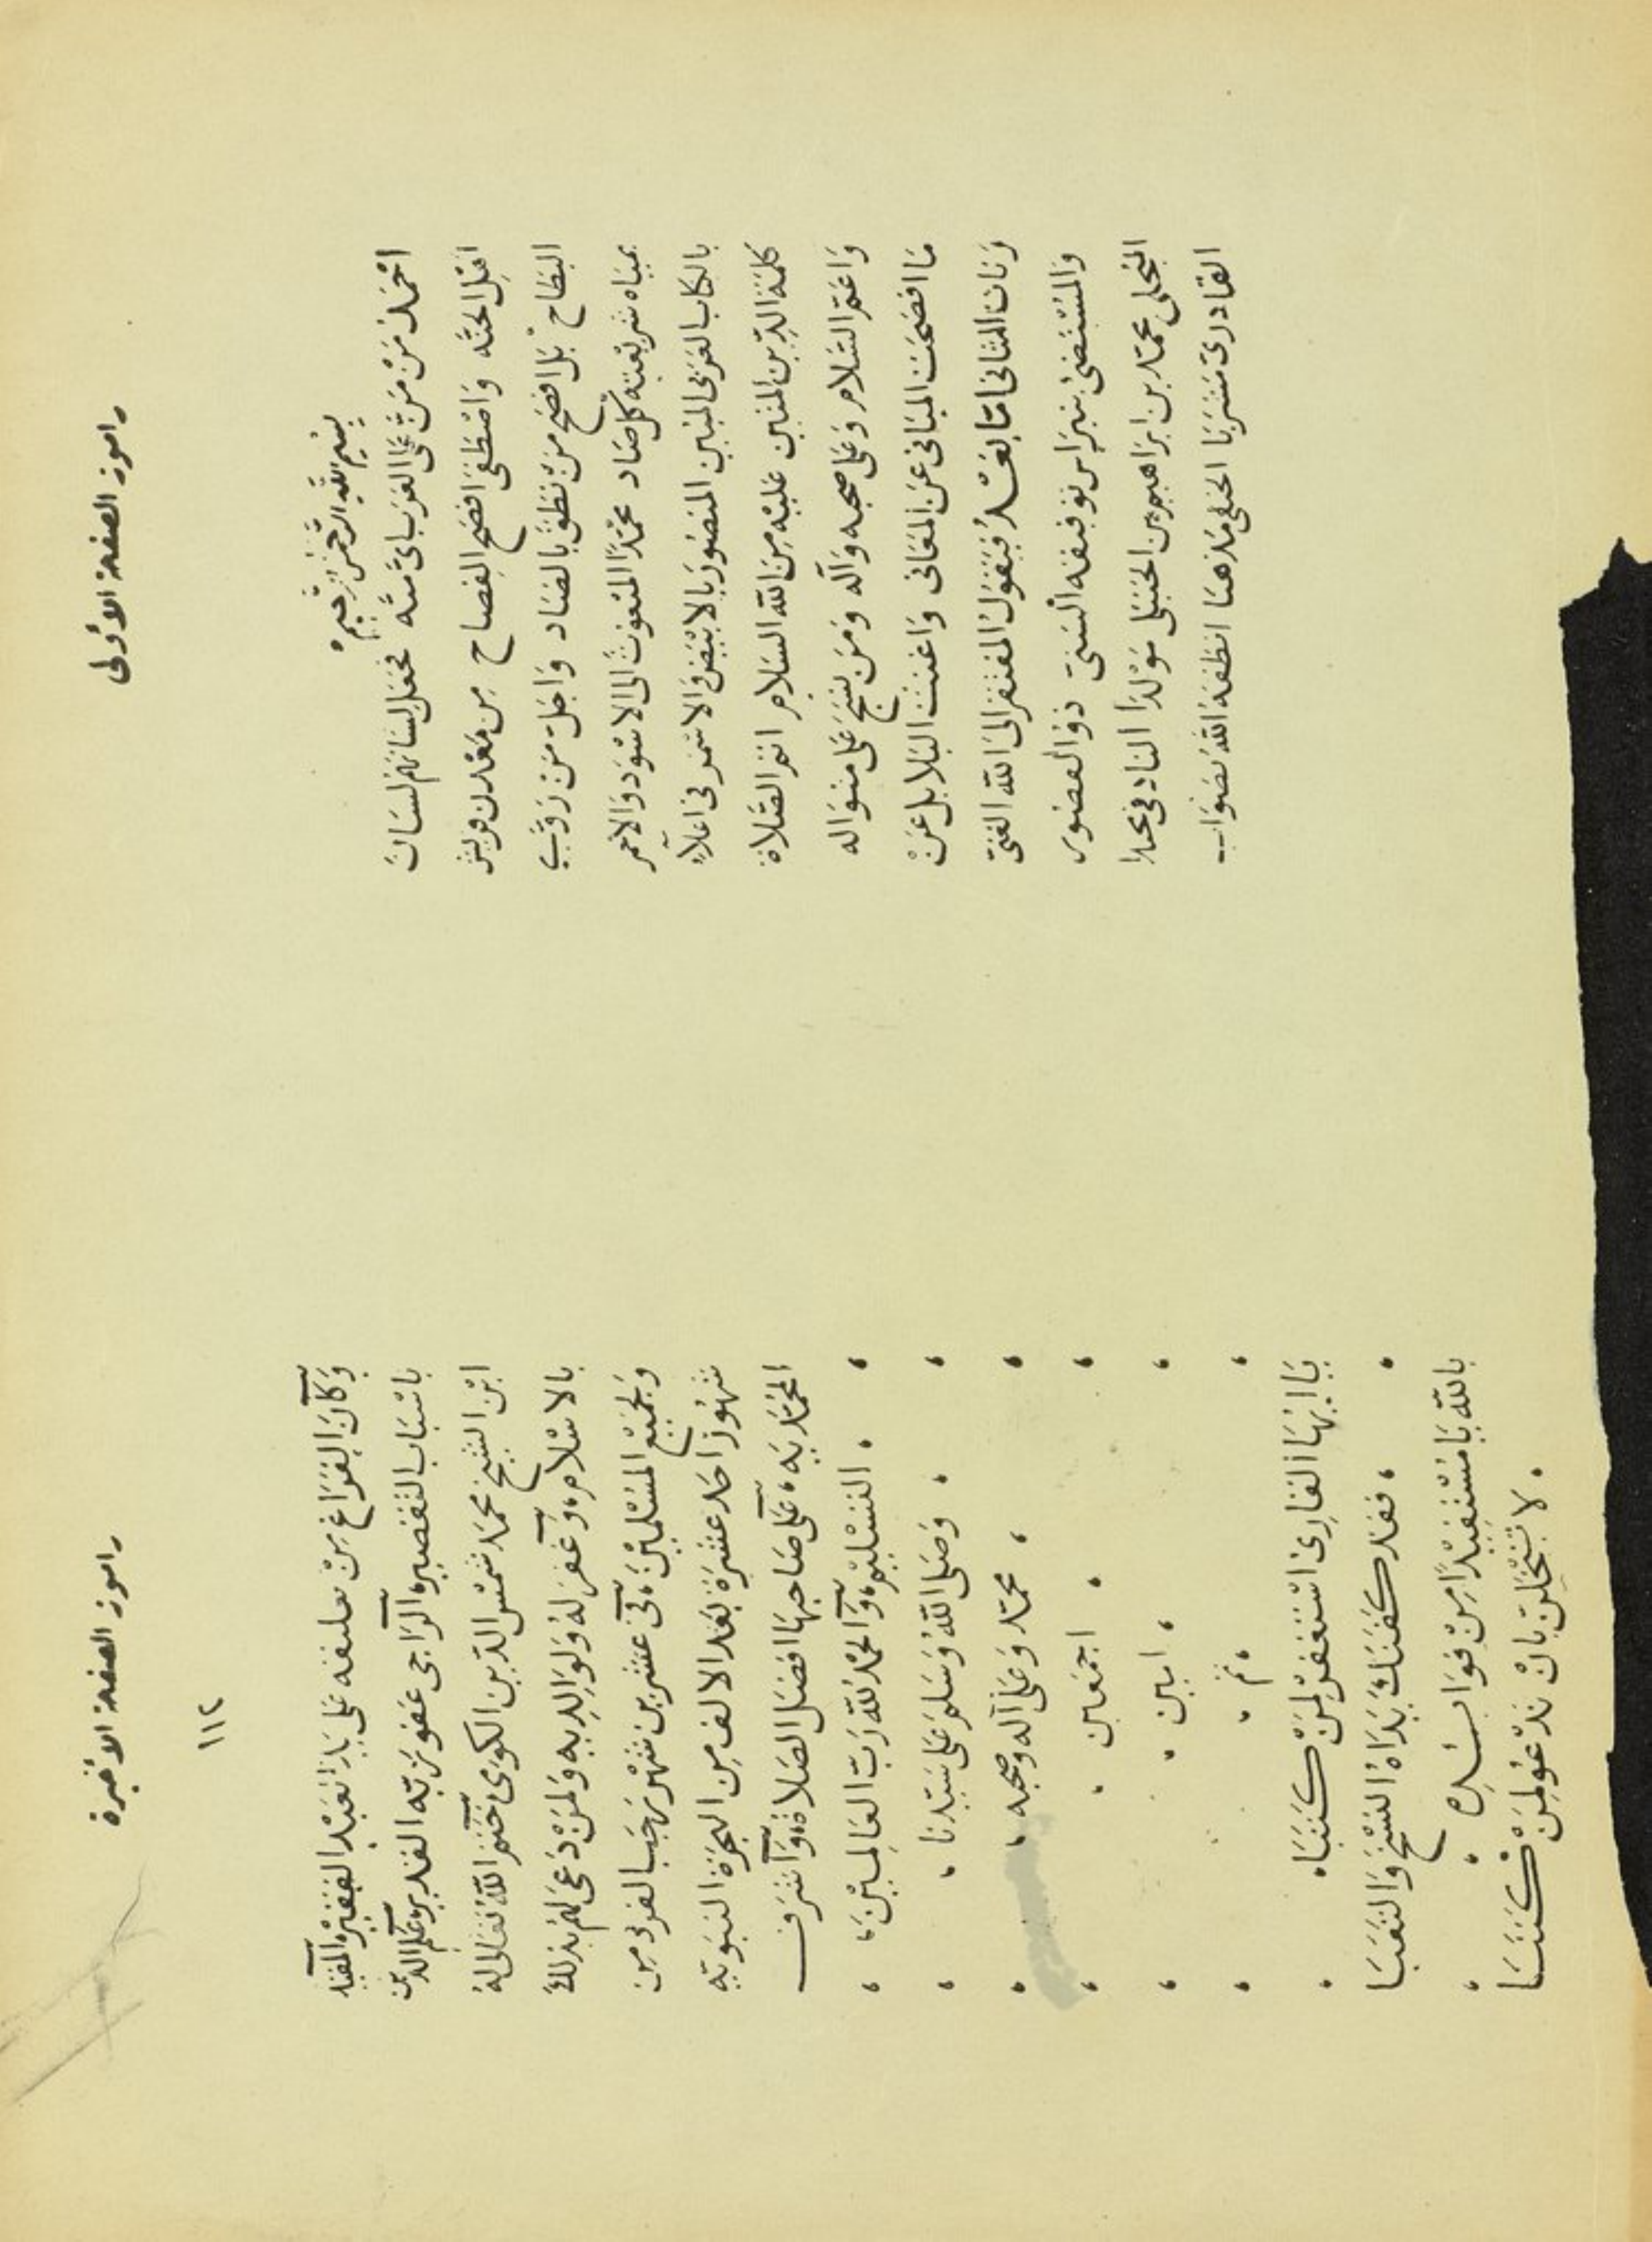 راموز الصفحة الأولى
بسم الله الرحمن الرحيم
احمد من منّ على العرب بأيّ منّه فجعل لسانهم لسان
اهل الجنّه واصطفى افصح الفصاح من معدن قريش
البطاح بل افصح من نطق بالضاد واجلّ من روّى
بمياه شريعته كل صاد محمدا المبعوث الى الاسود والاحمر
بالكتاب العربي المبين المنصور بالابيض والاسمر في اعلاء
كلمة الدين المتين عليه من الله السلام اتم الصلاة
واعم السلام وعلى صحبه وآله ومن نسج على منواله
ما افصحت المباني عن المعاني واغنت البلابل عن
رنات المثاني اما بعد فيقول المفتقر الى الله الغنيّ
والمستضئ بنبراس توفيقه السنيّ ذو القصور
الجلي محمد بن ابراهيم بن الحنبلي مولدا التادفي محتدا
القادري مشربا الحنفي مذهبا انطقه الله بصواب
راموز الصفحة الأخيرة
١١٢
وكان الفراغ من تعليقه على يد العبد الفقير، المقيد
باسباب التقصير، الراجي عفو ربه القدير، علم الدين
ابن الشيخ محمد شمس الدين الكوى، ختم الله تعالى له
بالاسلام، وغفر له ولوالديه ولمن دعى لهم بذلك
ولجميع المسلمين، في عشرين شهر رجب الفرد من
شهور احد عشرة بعد الالف من الهجرة النبويه
المحمديه، على صاحبها افضل الصلاة، واشرف
التسليم، والحمد لله رب العالمين،
وصلى الله وسلم على سيدنا
محمد وعلى آله وصحبه
اجمعين
امين
تم
يا ايها القارئ استغفر لمن كتبا
فقد كفتك يداه النسخ والتعبا
بالله يا مستفيدا من فوائده
لا تبخلن بان تدعو لمن كتبا